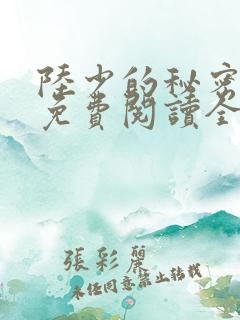 陸少的秘密
免費閱讀全
張彩麗
未經同意禁止轉載